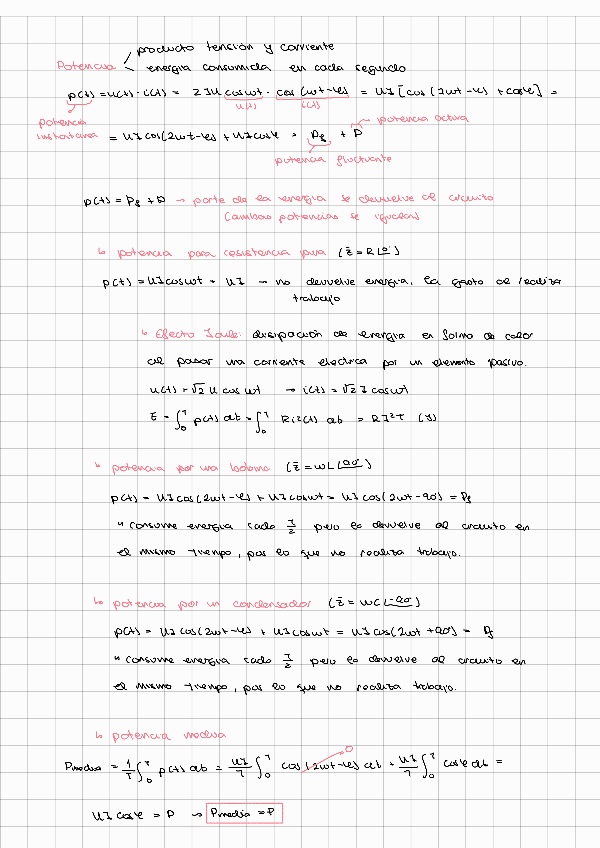 producto tensión y corriente
Potencia
energía consumida en cada segundo
p(t) = u(t) · i(t) = 2IU cosωt · cos(ωt-φ) = UI [cos(2ωt-φ) + cosφ] =
u(t) i(t)
potencia instantánea
= UI cos(2ωt-φ) + UI cosφ = Pf + P
potencia activa
potencia fluctuante
p(t) = Pf + P → parte de la energía se devuelve al circuito
(ambas potencias se igualan)
↳ potencia para resistencia pura (z̄ = R∠0°)
p(t) = UI cosωt + UI → no devuelve energía, la gasta al realizar
trabajo
↳ Efecto Joule: disipación de energía en forma de calor
al pasar una corriente eléctrica por un elemento pasivo.
u(t) = √2 U cos ωt → i(t) = √2 I cosωt
E = ∫₀ᵀ p(t) dt = ∫₀ᵀ Ri²(t) dt = RI²T (J)
↳ potencia por una bobina (z̄ = ωL∠90°)
p(t) = UI cos(2ωt-φ) + UI cosωt = UI cos(2ωt-90) = Pf
↳ consume energía cada T/2 pero la devuelve al circuito en
el mismo tiempo, por lo que no realiza trabajo.
↳ potencia por un condensador (z̄ = ωC∠-90°)
p(t) = UI cos(2ωt-φ) + UI cosωt = UI cos(2ωt+90) = Pf
↳ consume energía cada T/2 pero la devuelve al circuito en
el mismo tiempo, por lo que no realiza trabajo.
↳ potencia media
Pmedia = 1/T ∫₀ᵀ p(t) dt = UI/T ∫₀ᵀ cos(2ωt-φ) dt + UI/T ∫₀ᵀ cosφ dt =
0
UI cosφ = P → Pmedia = P